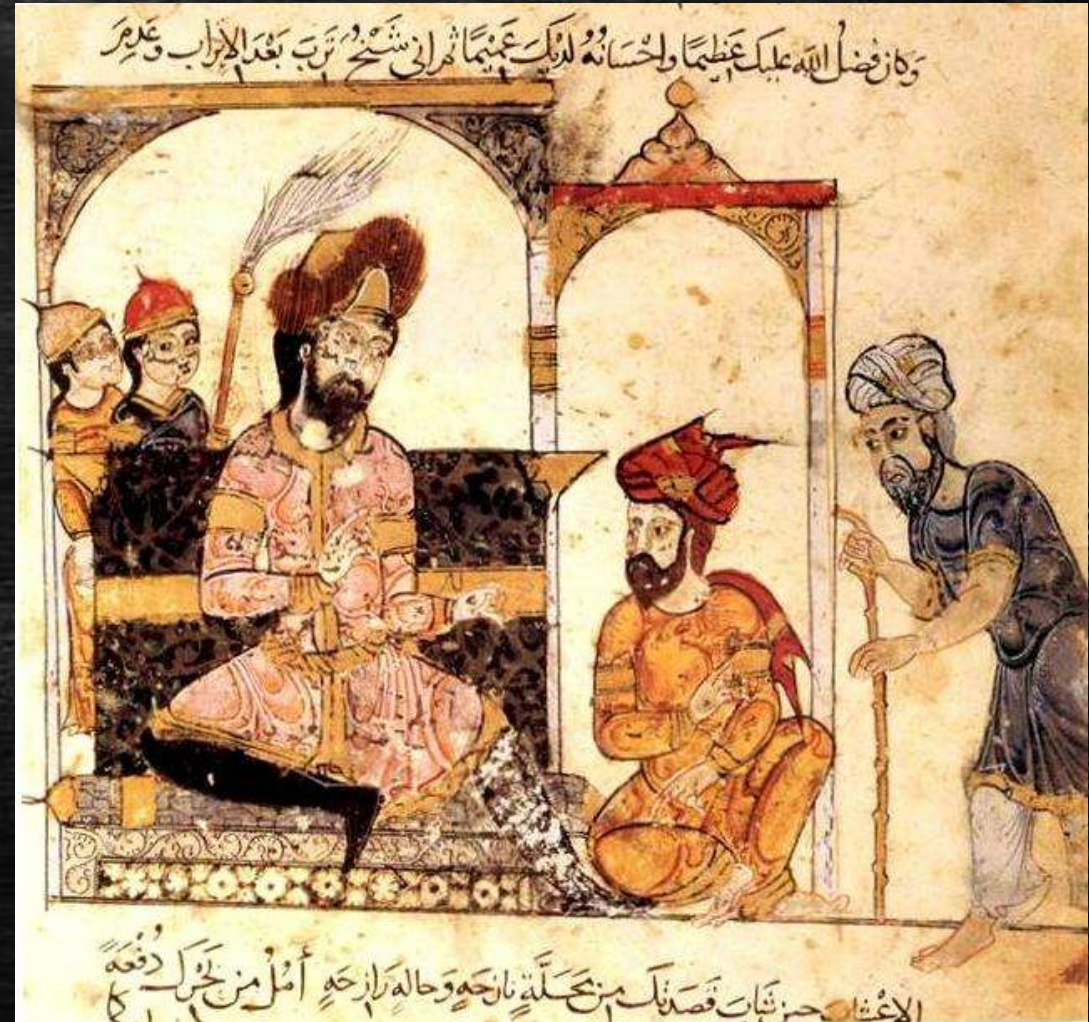 وَكان فضلُ الله عليك عَظيمًا واحْسَانُهُ لديكَ عَميمًا ثم اني شَيْخٌ تَرِبَ بَعْدَ الاتراب وعَدِمَ
الاعْشاب حين شابَ قصَدتكَ من محَلَّةٍ نازحَه وَحاله رَازحَه أمُلُ من بَحْرِكَ دُفْعَةً